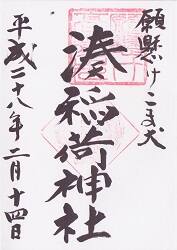 願懸けこま犬
湊稲荷神社
平成二十八年二月十四日